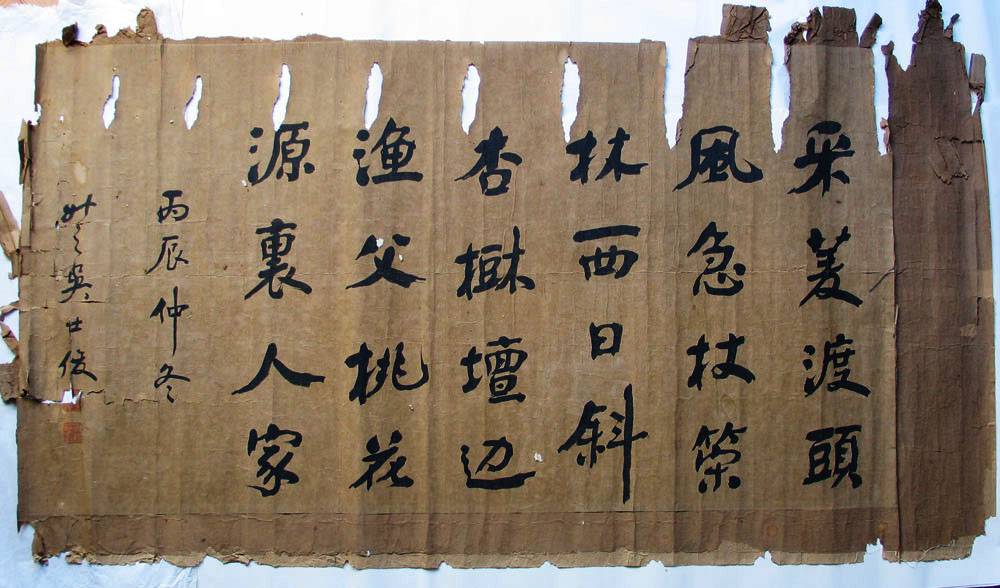 采菱渡頭
風急杖策
林西日斜
杏樹壇边
漁父桃花
源裏人家
丙辰仲冬
吳士俊